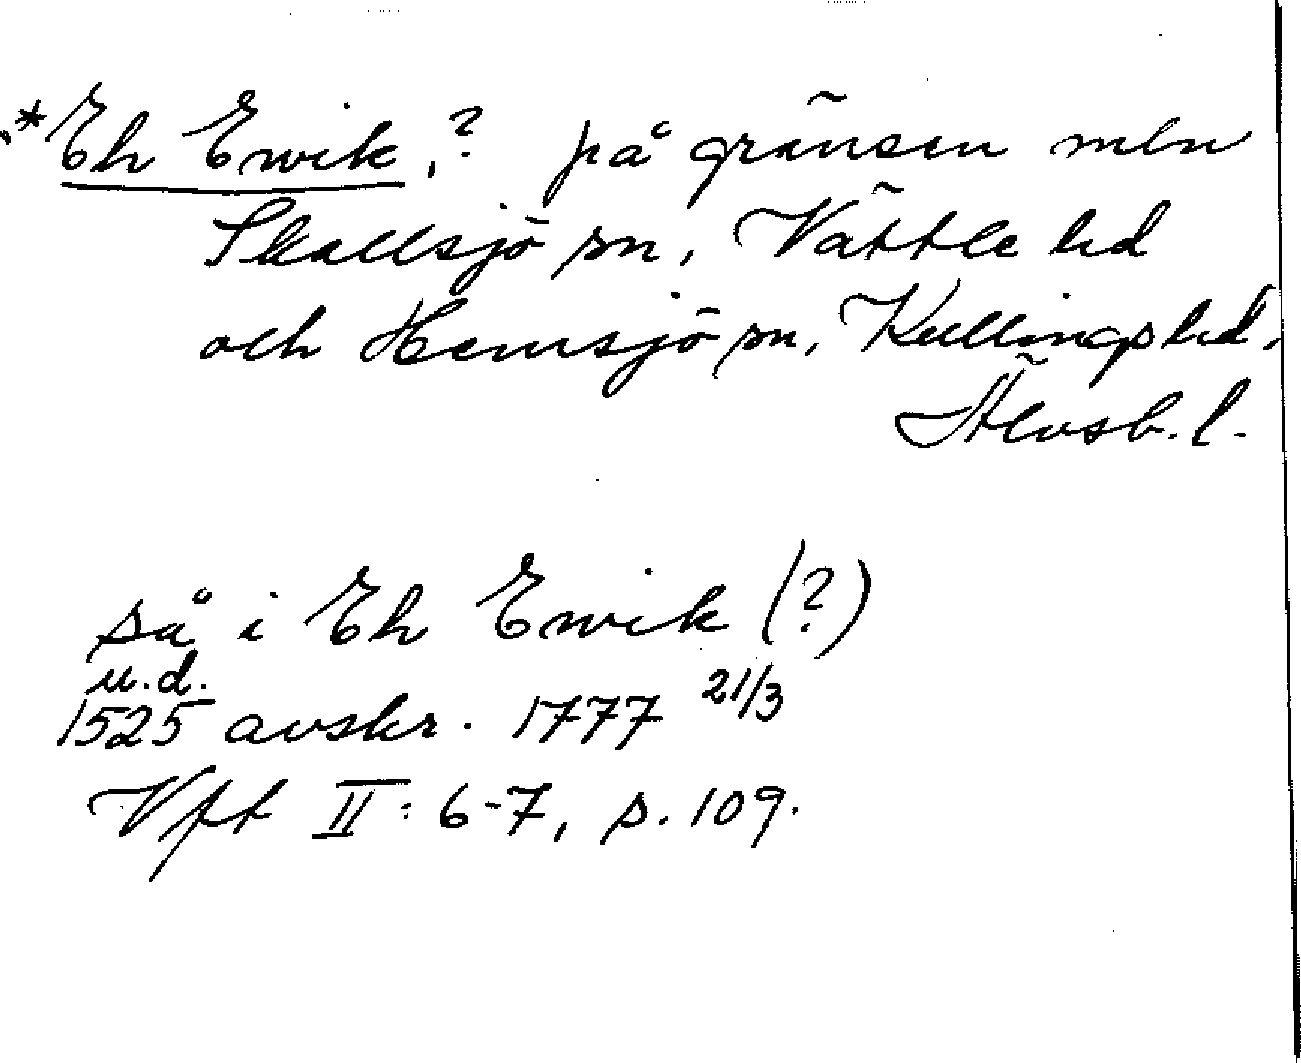 *Eh Ewik,? på gränsen mln
Skallsjö sn, Vättle hd
och Hemsjö sn, Kullings hd,
Älvsb. l.
så i Eh Ewik (?)
u.d.
1525 avskr. 1777 21/3
Vft II: 6-7, s. 109.